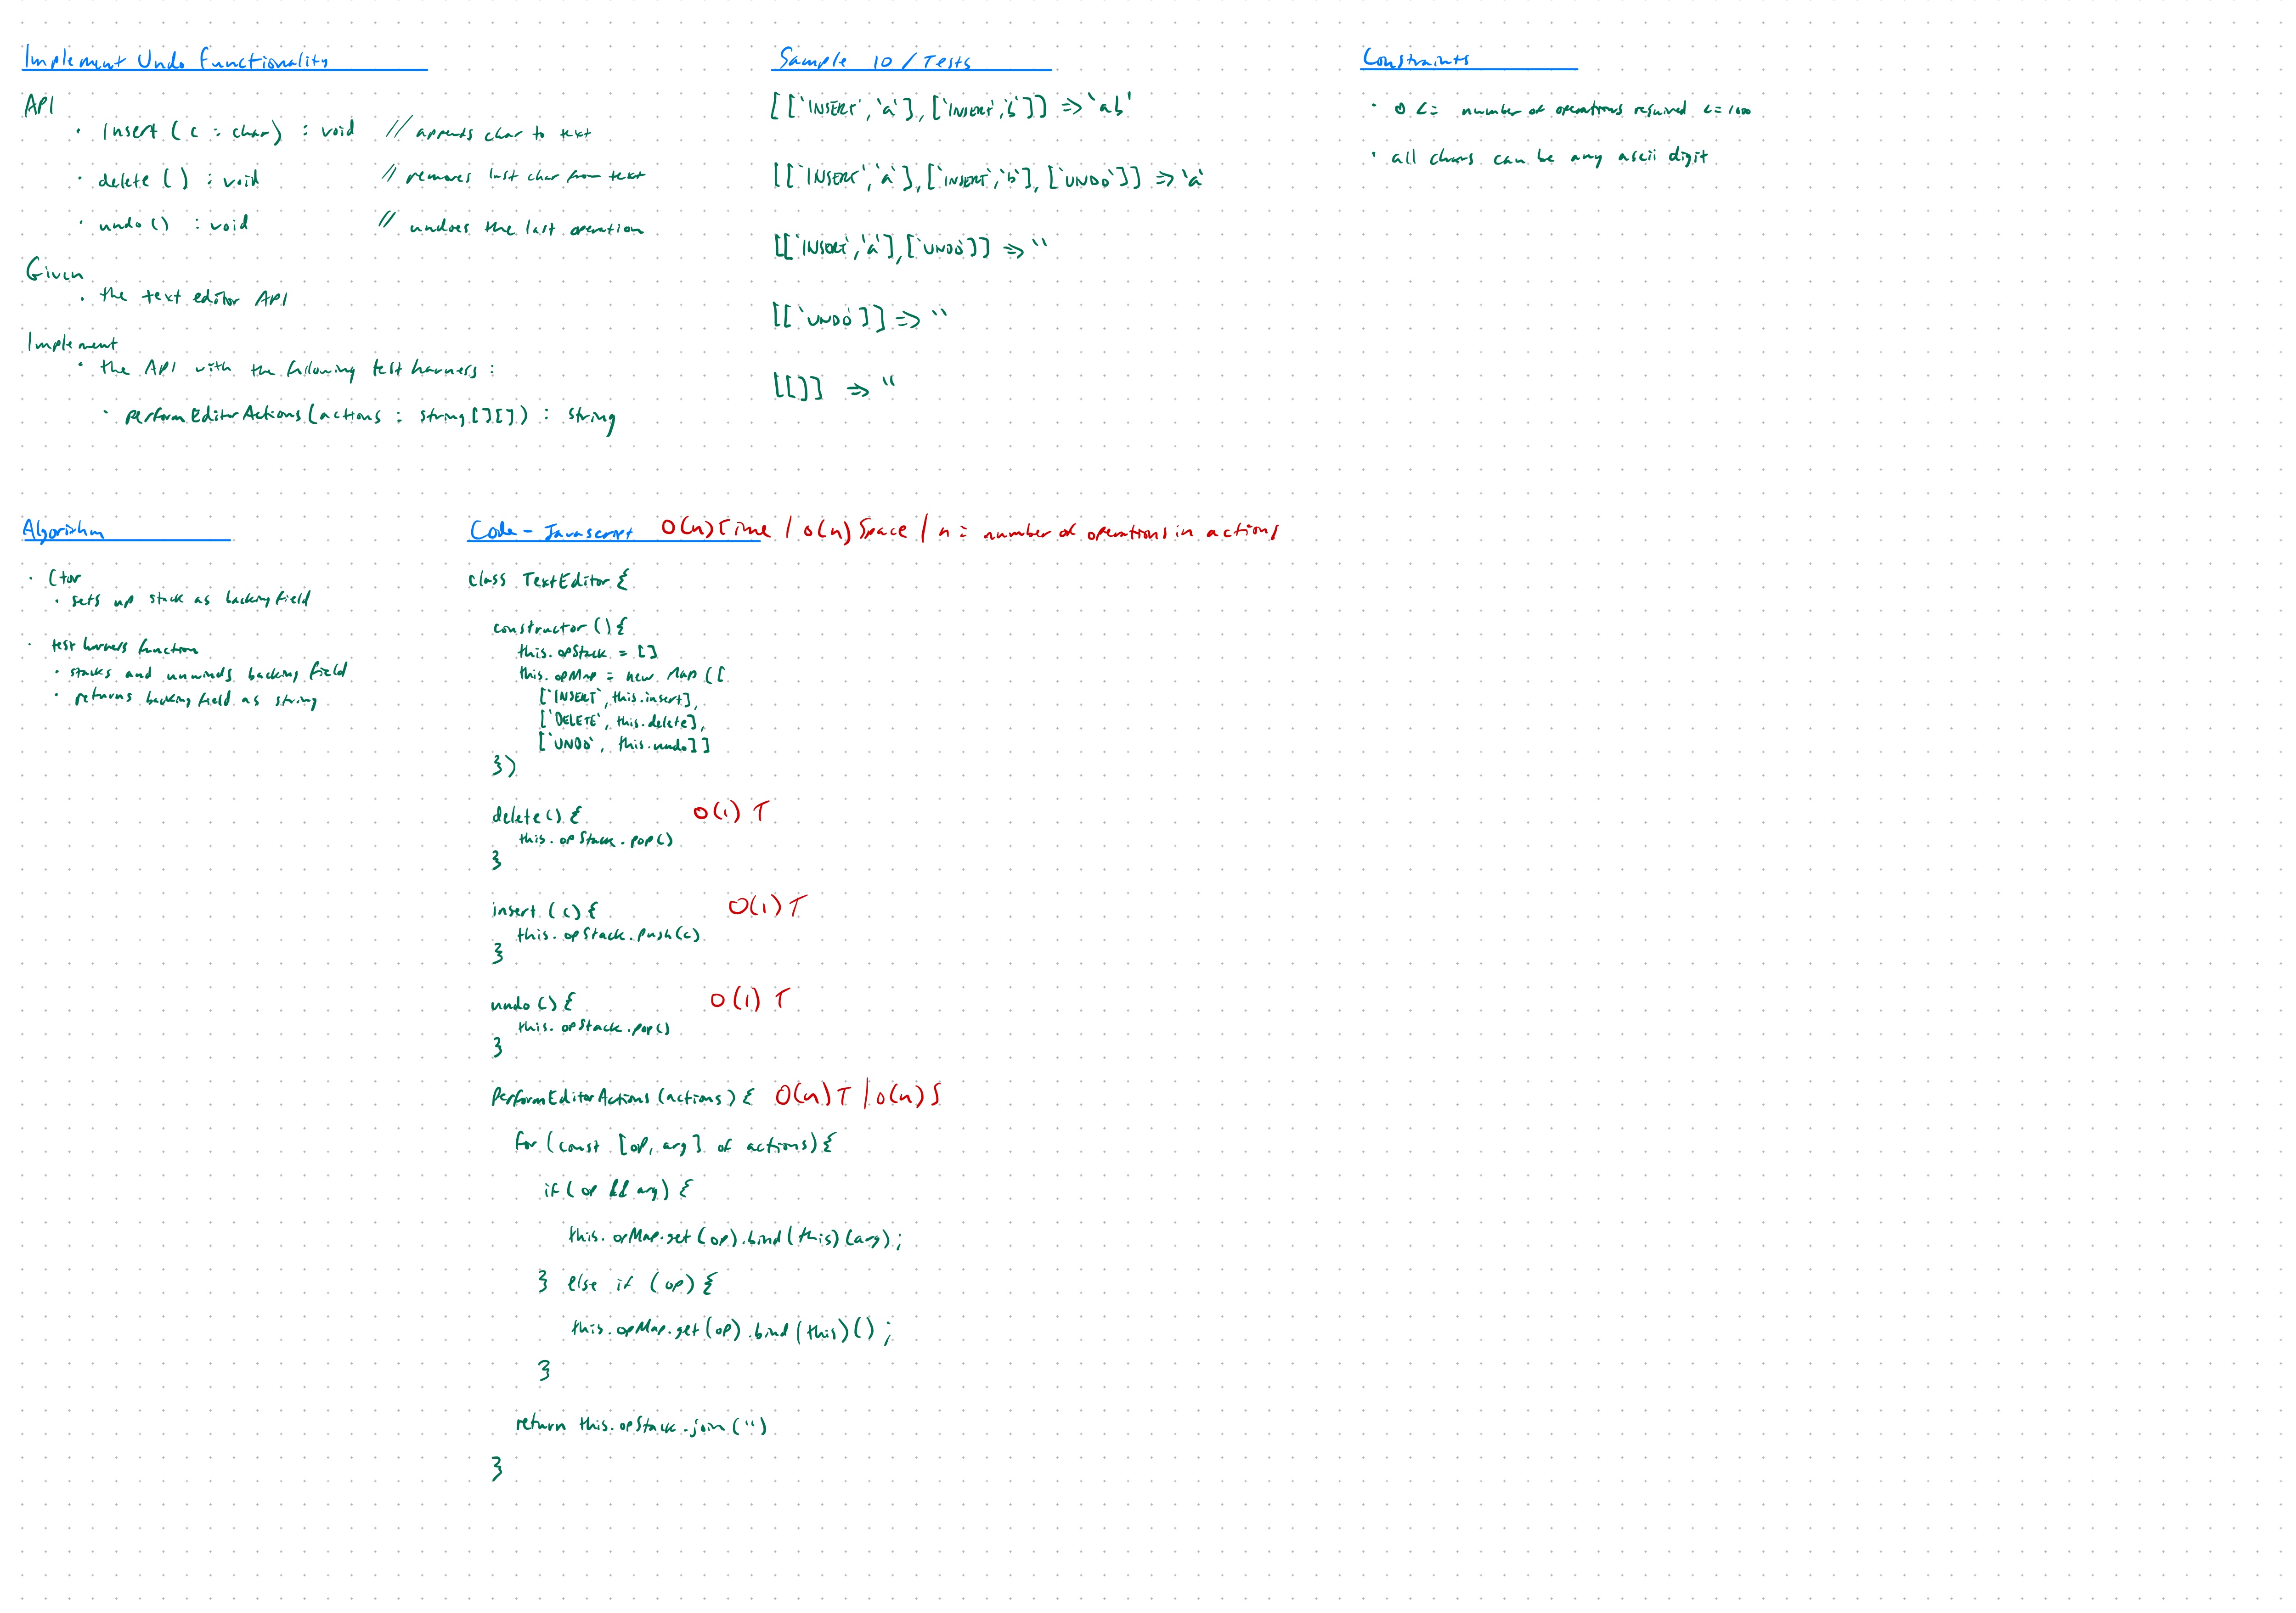 Implement Undo Functionality
API
· Insert ( c : char ) : void // appends char to text
· delete ( ) : void // removes last char from text
· undo ( ) : void // undoes the last operation
Given
· the text editor API
Implement
· the API with the following test harness :
· performEditorActions (actions : string [ ] [ ] ) : string
Sample IO / Tests
[ [ `INSERT`, `a` ], [ `INSERT`, `b` ] ] => `ab`
[ [ `INSERT`, `a` ], [ `INSERT`, `b` ], [ `UNDO` ] ] => `a`
[ [ `INSERT`, `a` ], [ `UNDO` ] ] => ``
[ [ `UNDO` ] ] => ``
[ [ ] ] => ``
Constraints
· 0 <= number of operations required <= 1000
· all chars can be any ascii digit
Algorithm
· Ctor
· sets up stack as backing field
· test harness function
· stacks and unwinds backing field
· returns backing field as string
Code - Javascript O(n) Time / O(n) Space / n = number of operations in actions
class TextEditor {
constructor () {
this.opStack = []
this.opMap = new Map ([
[`INSERT`, this.insert],
[`DELETE`, this.delete],
[`UNDO`, this.undo]]
})
delete () { O(1) T
this.opStack.pop()
}
insert (c) { O(1) T
this.opStack.push(c)
}
undo () { O(1) T
this.opStack.pop()
}
PerformEditorActions (actions) { O(n) T / O(n) S
for (const [op, arg] of actions) {
if (op && arg) {
this.opMap.get(op).bind(this)(arg);
} else if (op) {
this.opMap.get(op).bind(this)();
}
return this.opStack.join(``)
}